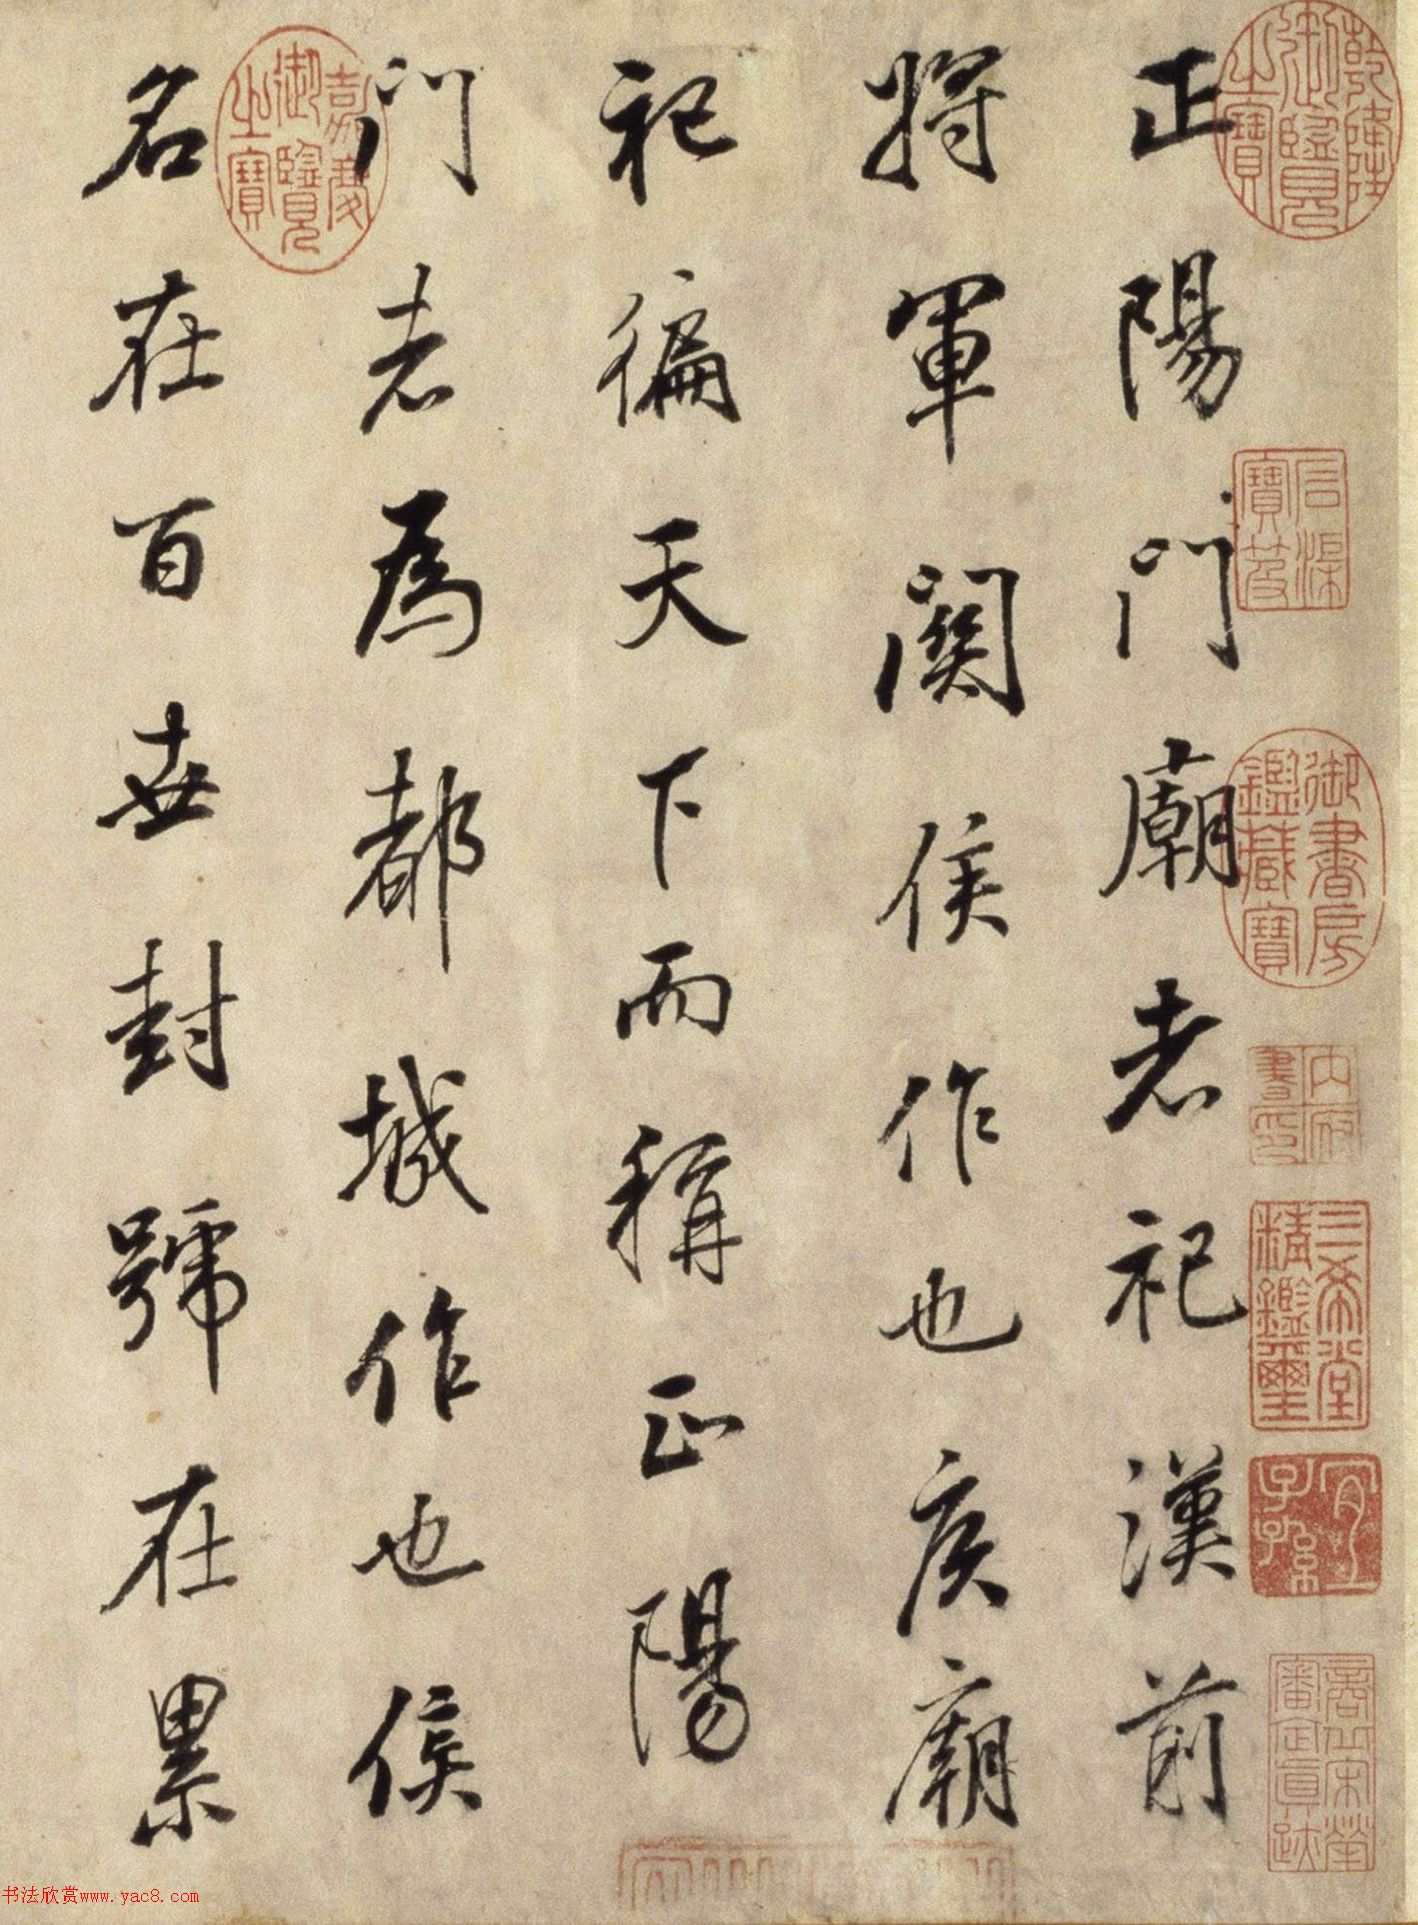 正陽門廟者祀漢前
將軍關侯作也侯廟
祀徧天下而稱正陽
門者為都城作也侯
名在百世封號在累
乾隆御覽之寶
嘉慶御覽之寶
石渠寶笈
御書房鑑藏寶
三希堂精鑑璽
宜子孫
書法欣赏www.yac8.com